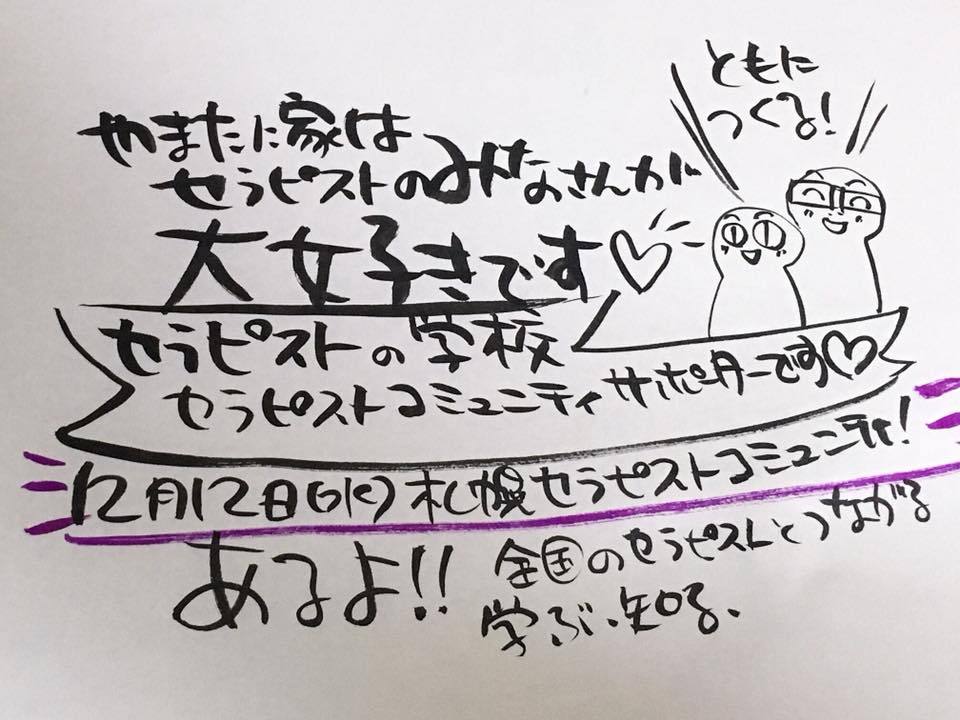 ともに
つくる!
やまたに家は
セラピストのみなさんが
大好きです♡
セラピストの学校
セラピストコミュニティサポーターです♡
12月12日(水)札幌セラピストコミュニティ!
あるよ!!
全国のセラピストとつながる
学ぶ、知る、